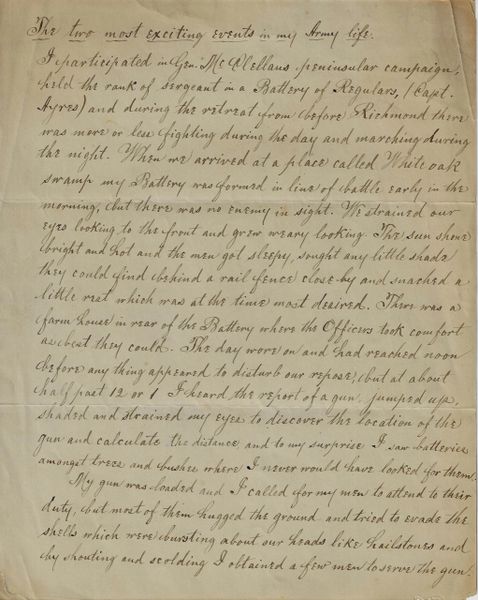 The two most exciting events in my Army life.
I participated in Gen. Mc Clellans peninsular campaign,
held the rank of sergeant in a Battery of Regulars, (Capt.
Ayres) and during the retreat from before Richmond there
was more or less fighting during the day and marching during
the night. When we arrived at a place called White oak
swamp my Battery was formed in line of battle early in the
morning, but there was no enemy in sight. We strained our
eyes looking to the front and grew weary looking. The sun shone
bright and hot and the men got sleepy, sought any little shade
they could find behind a rail fence close by and snached a
little rest which was at the time most desired. There was a
farm house in rear of the Battery where the Officers took comfort
as best they could. The day wore on and had reached noon
before any thing appeared to disturb our repose, but at about
half past 12 or 1 I heard the report of a gun, jumped up,
shaded and strained my eyes to discover the location of the
gun and calculate the distance and to my surprise I saw batteries
amongst trees and bushes where I never would have looked for them.
My gun was loaded and I called for my men to attend to their
duty, but most of them hugged the ground and tried to evade the
shells which were bursting about our heads like hailstones and
by shouting and scolding I obtained a few men to serve the gun.